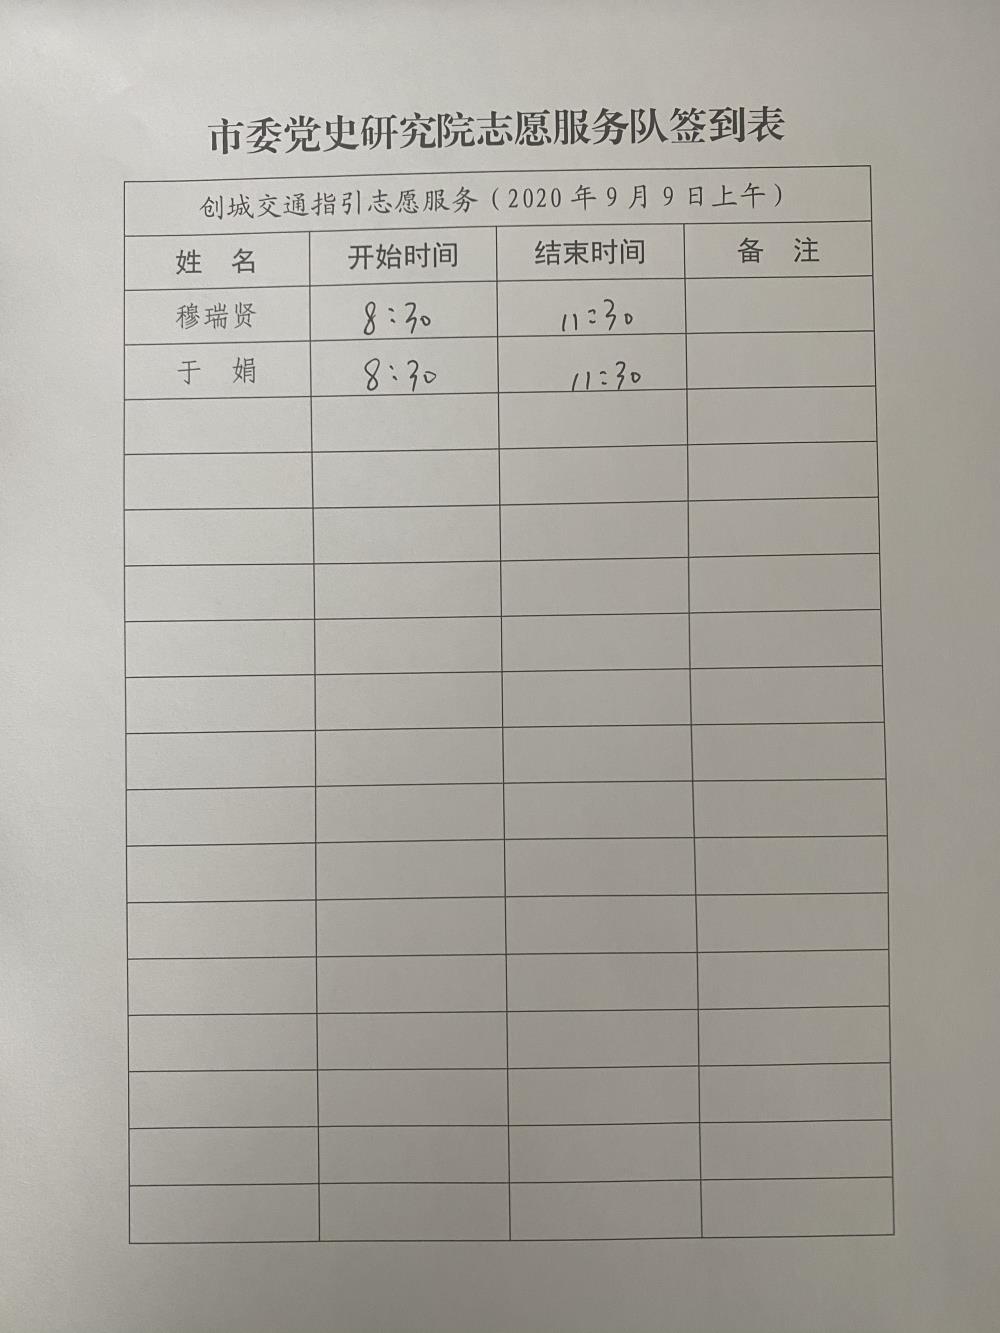 市委党史研究院志愿服务队签到表
创城交通指引志愿服务（2020 年 9 月 9 日上午）
姓 名 开始时间 结束时间 备 注
穆瑞贤 8:30 11:30
于 娟 8:30 11:30